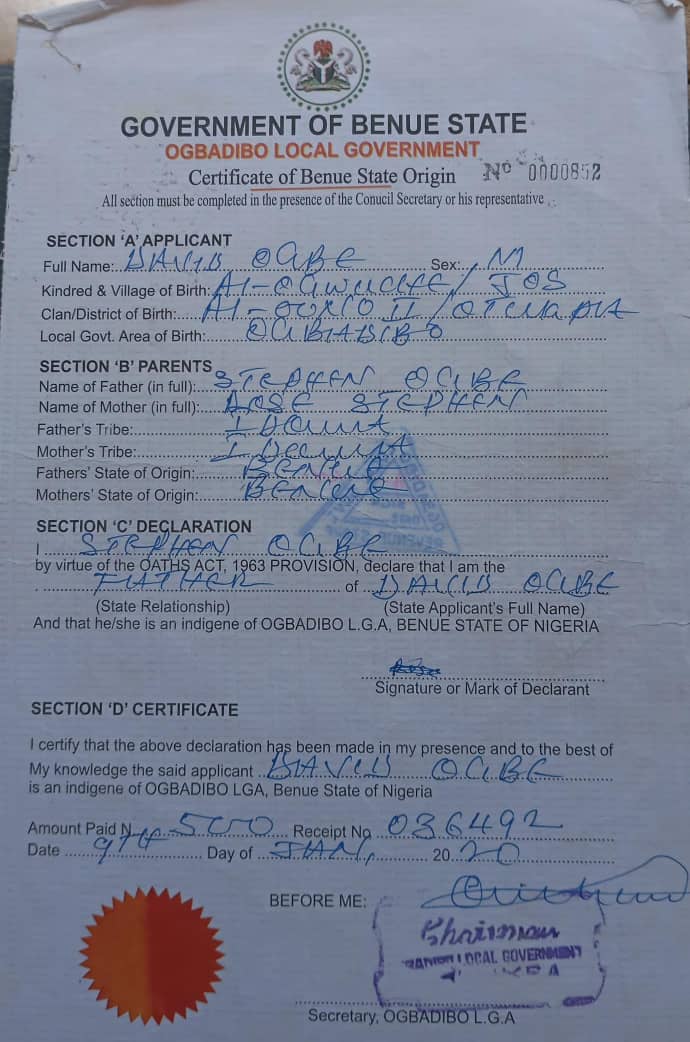 GOVERNMENT OF BENUE STATE
OGBADIBO LOCAL GOVERNMENT
Certificate of Benue State Origin No 0000852
All section must be completed in the presence of the Conucil Secretary or his representative
SECTION 'A' APPLICANT
Full Name: DAVID OGBE Sex: M
Kindred & Village of Birth: / JOS
Clan/District of Birth:
Local Govt. Area of Birth: OGBADIBO
SECTION 'B' PARENTS
Name of Father (in full): STEPHEN OGBE
Name of Mother (in full): ROSE STEPHEN
Father's Tribe: IDOMA
Mother's Tribe: IDOMA
Fathers' State of Origin: BENUE
Mothers' State of Origin: BENUE
SECTION 'C' DECLARATION
I STEPHEN OGBE
by virtue of the OATHS ACT, 1963 PROVISION, declare that I am the
FATHER of DAVID OGBE
(State Relationship) (State Applicant's Full Name)
And that he/she is an indigene of OGBADIBO L.G.A, BENUE STATE OF NIGERIA
Signature or Mark of Declarant
SECTION 'D' CERTIFICATE
I certify that the above declaration has been made in my presence and to the best of
My knowledge the said applicant DAVID OGBE
is an indigene of OGBADIBO LGA, Benue State of Nigeria
Amount Paid N 500 Receipt No 036492
Date 9TH Day of JAN, 2020
BEFORE ME:
Chairman
LOCAL GOVERNMENT
Secretary, OGBADIBO L.G.A